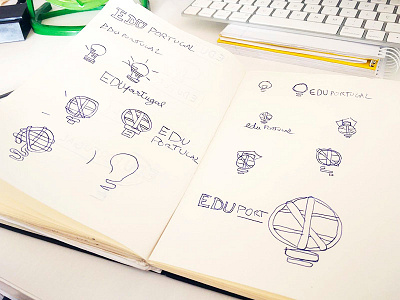 EDU PORTUGAL
EDU PORTUGAL
EDUportugal
EDU
PORTUGAL
EDU PORTUGAL
edu PORTUGAL
EDU PORT